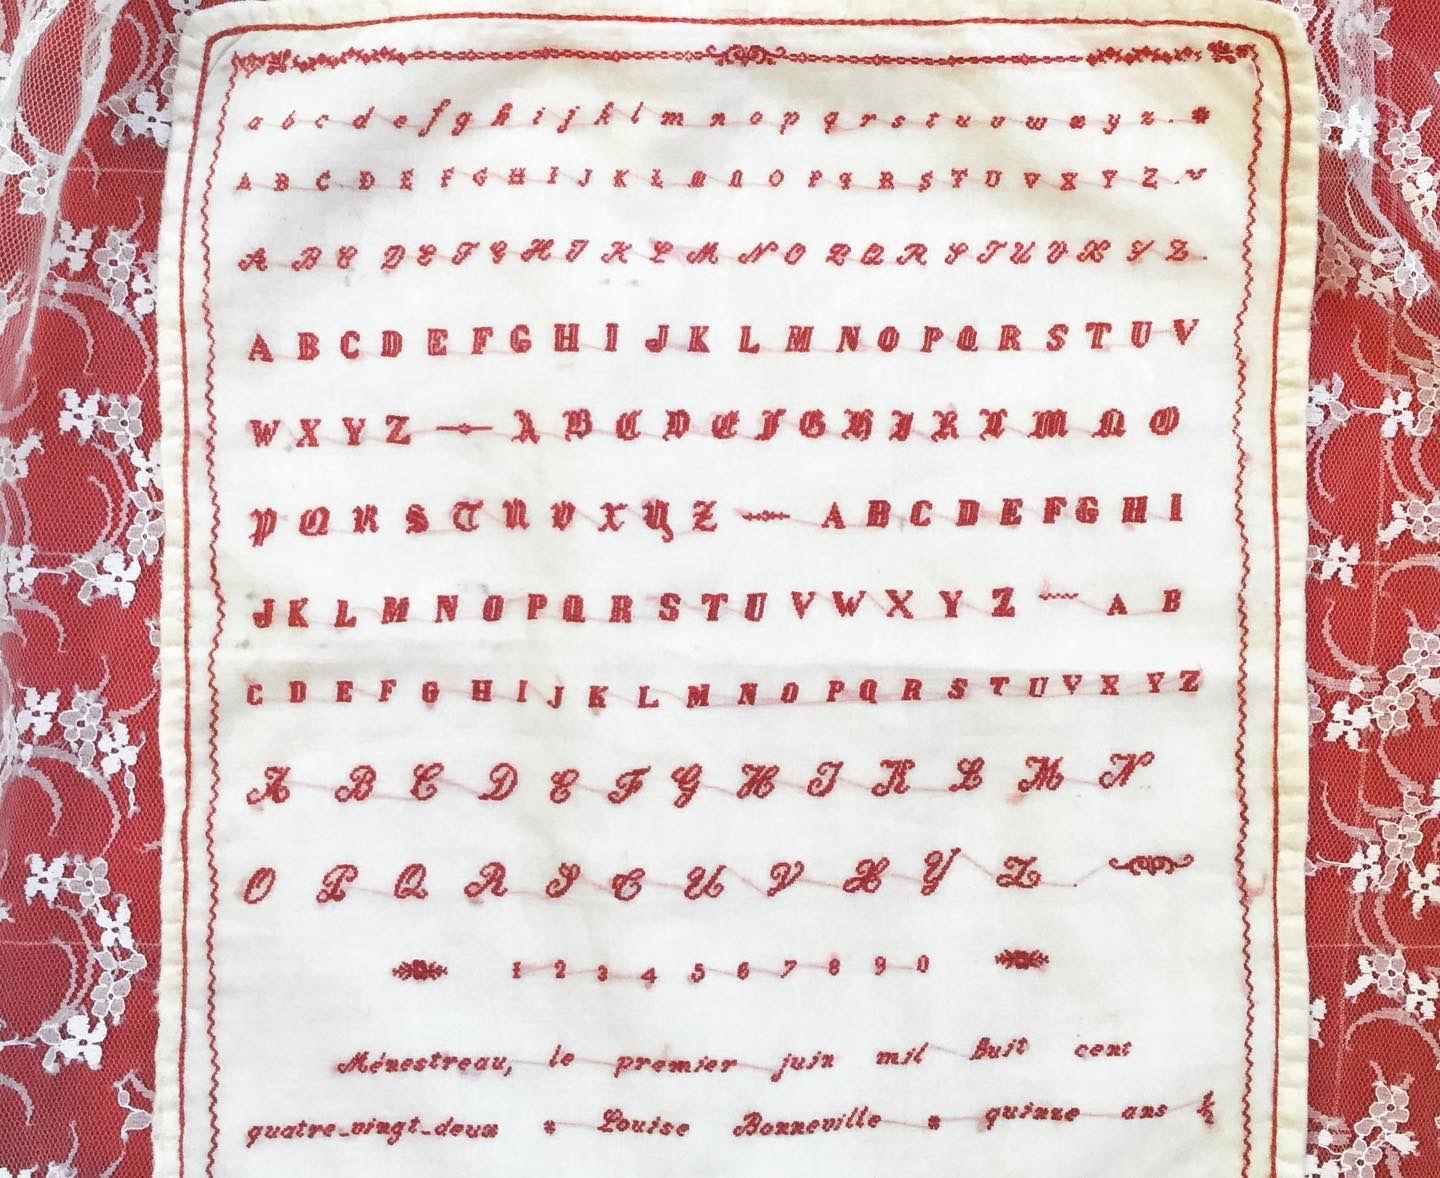 a b c d e f g h i j k l m n o p q r s t u v w x y z .
A B C D E F G H I J K L M N O P Q R S T U V X Y Z .
A B C D E F G H I K L M N O P Q R S T U V X Y Z .
A B C D E F G H I J K L M N O P Q R S T U V
W X Y Z — A B C D E F G H I K L M N O
P Q R S T U V X Y Z — A B C D E F G H I
J K L M N O P Q R S T U V W X Y Z — A B
C D E F G H I J K L M N O P Q R S T U V X Y Z
A B C D E F G H I K L M N
O P Q R S T U V X Y Z .
1 2 3 4 5 6 7 8 9 0
Ménestreau, le premier juin mil huit cent
quatre-vingt-deux Louise Bonneville quinze ans ½